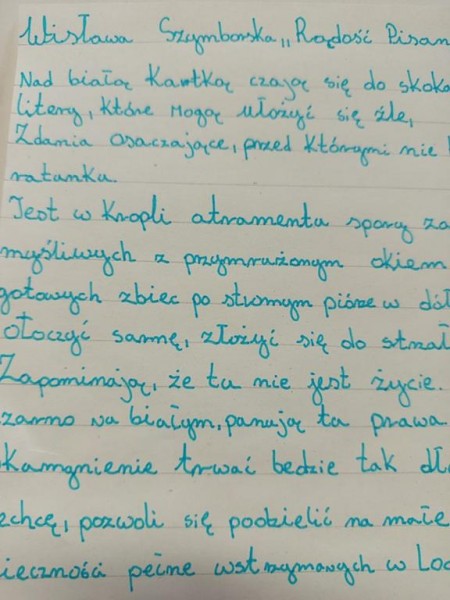 Wisława Szymborska „Radość Pisan
Nad białą Kartką czają się do skoko
litery, które mogą ułożyć się źle,
Zdania osaczające, przed którymi nie
ratunku.
Jest w Kropli atramentu spory za
myśliwych z przymrużonym okiem
gotowych zbiec po stromym piórze w dół
otoczyć sarnę, złożyć się do strzał
Zapominają, że tu nie jest życie.
zarno na białym, panują tu prawa
kamgnienie trwać będzie tak dł
echcę, pozwoli się podzielić na małe
ieczności pełne wstrzymanych w Loc